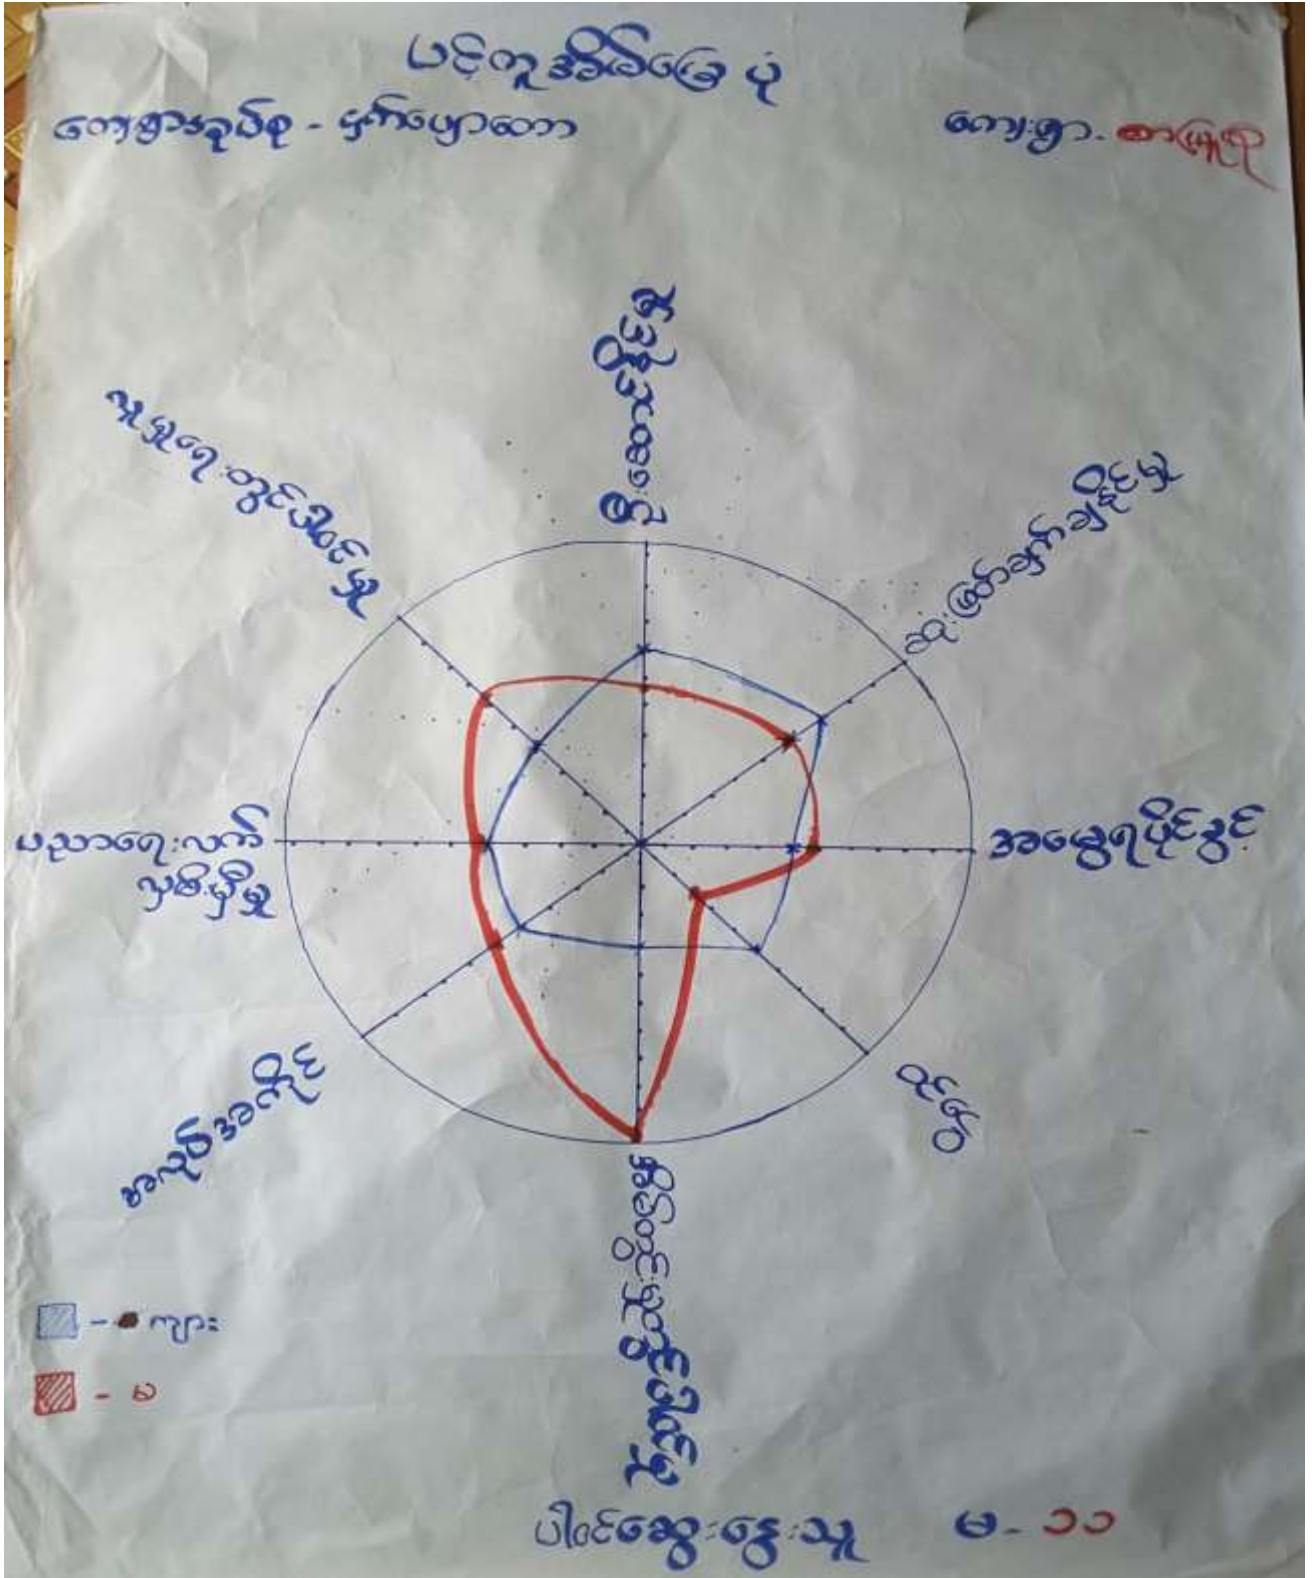 ပင့်ကူအိမ်မြှေပုံ
ကျေးရွာအုပ်စု - ငှက်ပျောတော
ကျေးရွာ -
ဆုံးဖြတ်ချက်ချနိုင်မှု
အမွေရပိုင်ခွင့်
ဝင်ငွေ
အိမ်တွင်းမှုတွင်ပါဝင်မှု
အလုပ်အကိုင်
ပညာရေးလက်
လှမ်းမှီမှု
လူမှုရေးတွင်ပါဝင်မှု
- ကျား
- မ
ပါဝင်ဆွေးနွေးသူ မ - ၁၁